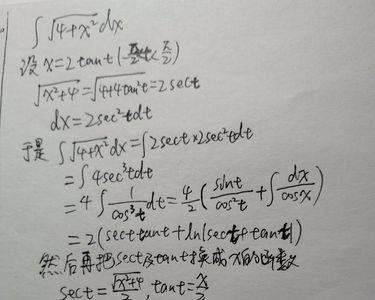 ∫√(4+x²) dx
设 x=2tant (-π/2<t<π/2)
√(x²+4)=√(4+4tan²t)=2sect
dx=2sec²tdt
于是 ∫√(4+x²) dx=∫2sect×2sec²tdt
=∫4sec³tdt
=4∫1/cos³t dt=4/2(sint/cos²t+∫dx/cosx)
=2(sect tant+ln|sect+tant|)
然后再把sect及tant换成x的函数
sect=√(x²+4)/2, tant=x/2